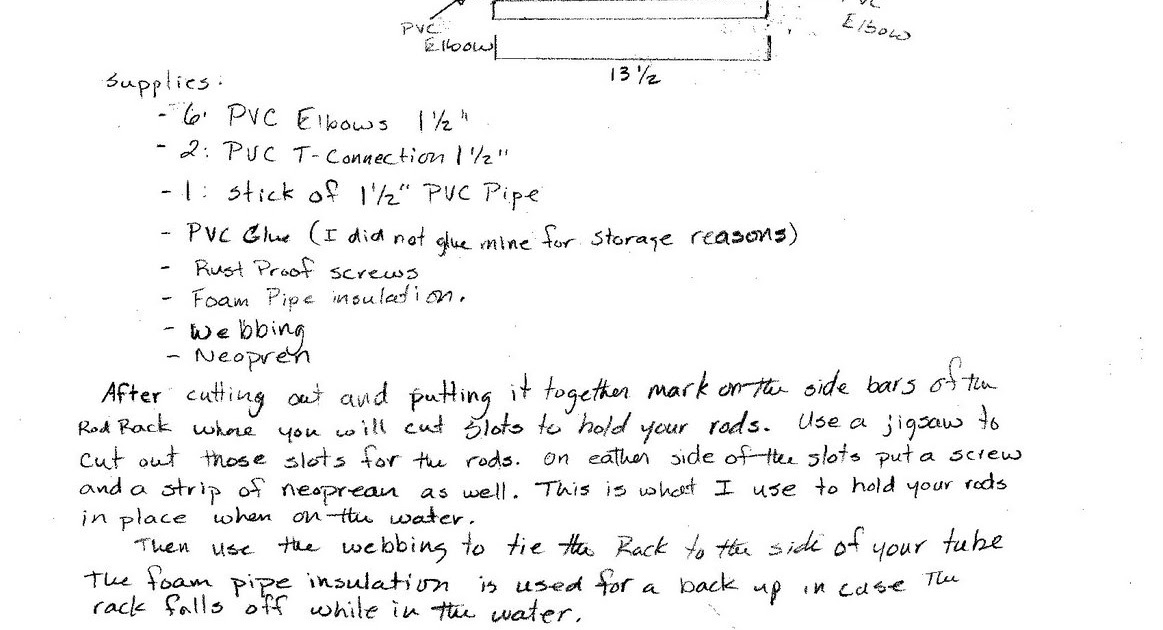 PVC
Elbow
Elbow
13 1/2
Supplies:
- 6: PVC Elbows 1 1/2"
- 2: PVC T-Connection 1 1/2"
- 1: stick of 1 1/2" PVC Pipe
- PVC Glue (I did not glue mine for storage reasons)
- Rust Proof screws
- Foam Pipe insulation.
- Webbing
- Neopren
After cutting out and putting it together mark on the side bars of the
Rod Rack where you will cut slots to hold your rods. Use a jigsaw to
cut out those slots for the rods. on eather side of the slots put a screw
and a strip of neoprean as well. This is what I use to hold your rods
in place when on the water.
Then use the webbing to tie the Rack to the side of your tube
The foam pipe insulation is used for a back up in case The
rack falls off while in the water.